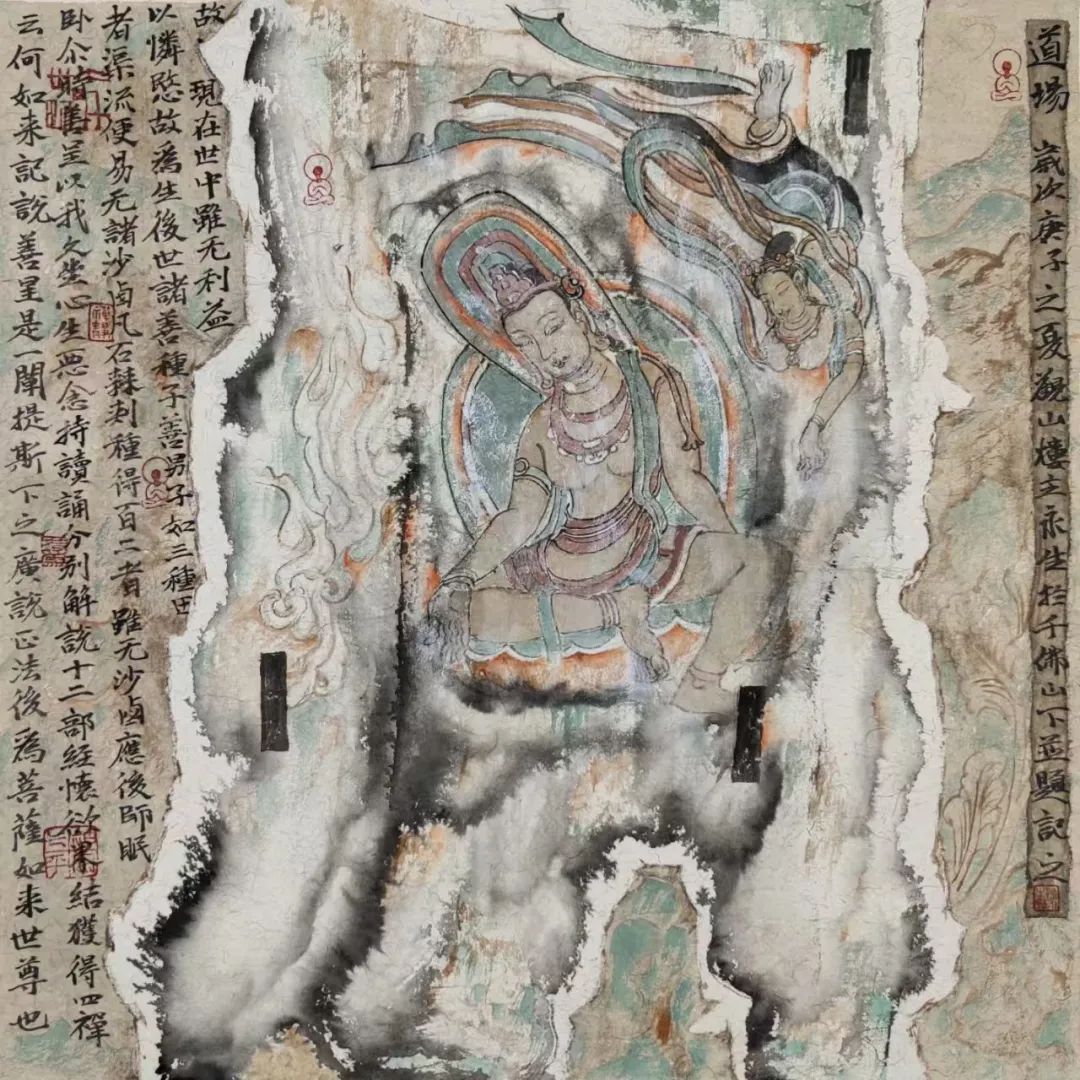 道場 歲次庚子之夏觀山樓主永生於千佛山下並題記之
故 現在世中雖无利益
以憐愍故爲生後世諸善種子善男子如三種田
者渠流便易无諸沙鹵瓦石棘刺種得百二者雖无沙鹵應後師眠
卧尒時善呈以我久坐心生惡念持讀誦分別解說十二部經懷欲界結獲得四禪
云何如来記說善星是一闡提斯下之廣說正法後爲菩薩如来世尊也